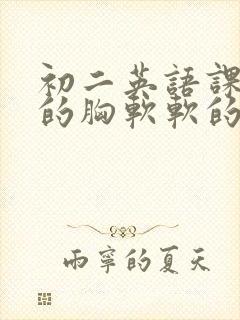 初二英語課
的胸軟軟的
雨寧的夏天